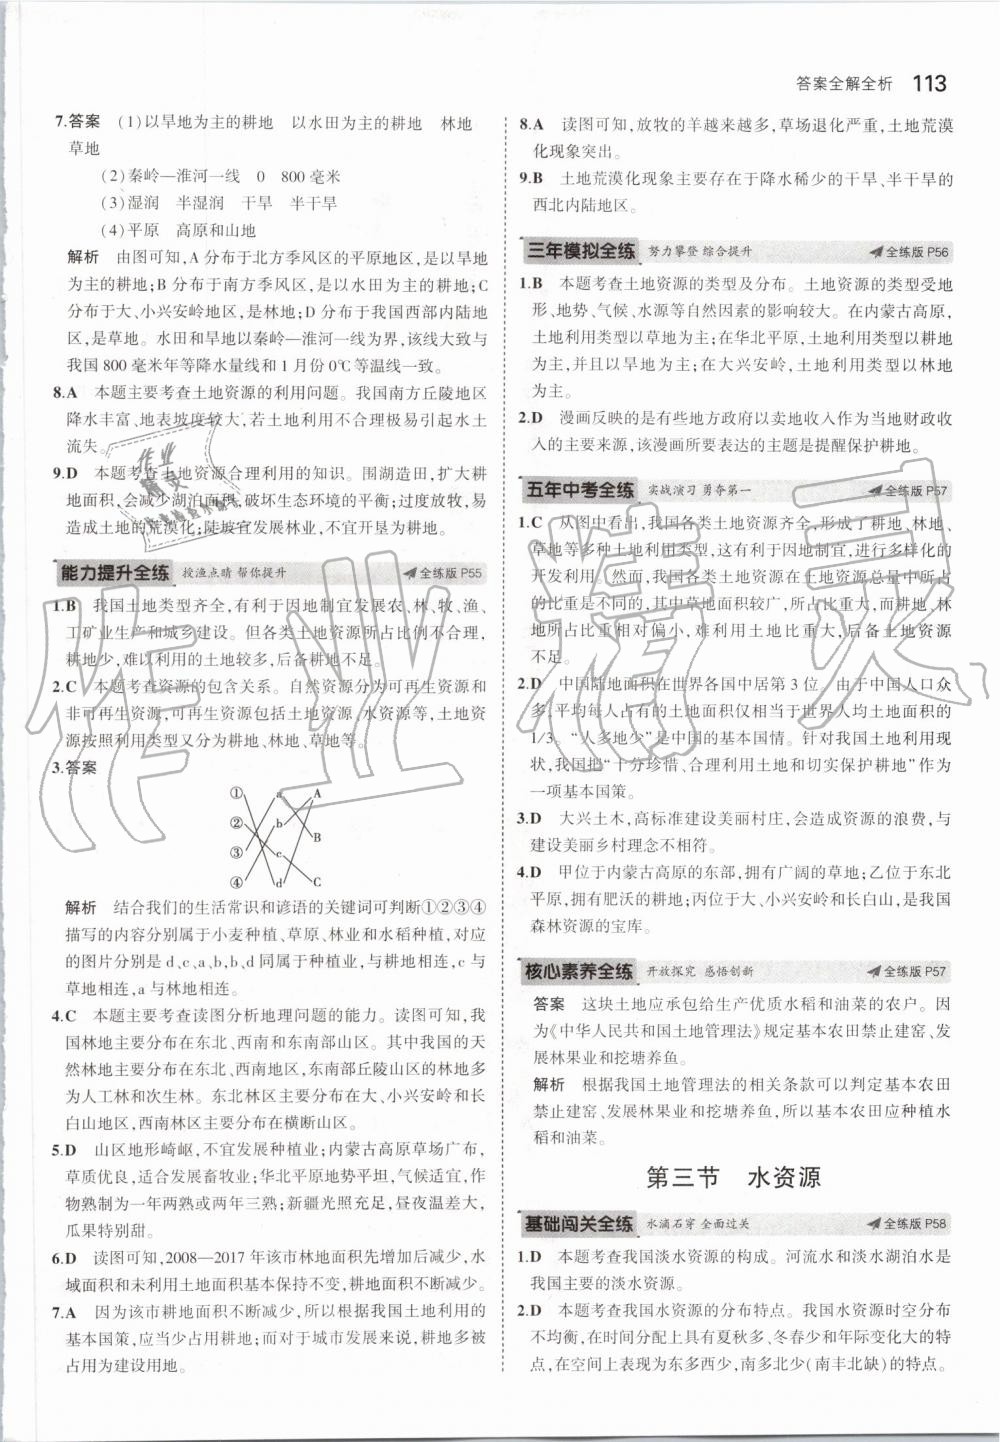 答案全解全析 113
7.答案 (1)以旱地为主的耕地 以水田为主的耕地 林地
草地
(2)秦岭—淮河一线 0 800毫米
(3)湿润 半湿润 干旱 半干旱
(4)平原 高原和山地
解析 由图可知,A分布于北方季风区的平原地区,是以旱
地为主的耕地;B分布于南方季风区,是以水田为主的耕地;C
分布于大、小兴安岭地区,是林地;D分布于我国西部内陆地
区,是草地。水田和旱地以秦岭—淮河一线为界,该线大致与
我国800毫米年等降水量线和1月份0℃等温线一致。
8.A 本题主要考查土地资源的利用问题。我国南方丘陵地区
降水丰富,地表坡度较大,若土地利用不合理极易引起水土
流失。
9.D 本题考查土地资源合理利用的知识。围湖造田,扩大耕
地面积,会减少湖泊面积,破坏生态环境的平衡;过度放牧,易
造成土地的荒漠化;陡坡宜发展林业,不宜开垦为耕地。
能力提升全练 授渔点睛 帮你提升 全练版P55
1.B 我国土地类型齐全,有利于因地制宜发展农、林、牧、渔、
工矿业生产和城乡建设。但各类土地资源所占比例不合理,
耕地少,难以利用的土地较多,后备耕地不足。
2.C 本题考查资源的包含关系。自然资源分为可再生资源和
非可再生资源,可再生资源包括土地资源、水资源等,土地资
源按照利用类型又分为耕地、林地、草地等。
3.答案
① a A
② b
B
③ c
④ d C
解析 结合我们的生活常识和谚语的关键词可判断①②③④
描写的内容分别属于小麦种植、草原、林业和水稻种植,对应
的图片分别是d、c、a、b,b、d同属于种植业,与耕地相连,c与
草地相连,a与林地相连。
4.C 本题主要考查读图分析地理问题的能力。读图可知,我
国林地主要分布在东北、西南和东南部山区。其中我国的天
然林地主要分布在东北、西南地区,东南部丘陵山区的林地多
为人工林和次生林。东北林区主要分布在大、小兴安岭和长
白山地区,西南林区主要分布在横断山区。
5.D 山区地形崎岖,不宜发展种植业;内蒙古高原草场广布,
草质优良,适合发展畜牧业;华北平原地势平坦,气候适宜,作
物熟制为一年两熟或两年三熟;新疆光照充足,昼夜温差大,
瓜果特别甜。
6.D 读图可知,2008—2017年该市林地面积先增加后减少,水
域面积和未利用土地面积基本保持不变,耕地面积不断减少。
7.A 因为该市耕地面积不断减少,所以根据我国土地利用的
基本国策,应当少占用耕地;而对于城市发展来说,耕地多被
占用为建设用地。
8.A 读图可知,放牧的羊越来越多,草场退化严重,土地荒漠
化现象突出。
9.B 土地荒漠化现象主要存在于降水稀少的干旱、半干旱的
西北内陆地区。
三年模拟全练 努力攀登 综合提升 全练版P56
1.B 本题考查土地资源的类型及分布。土地资源的类型受地
形、地势、气候、水源等自然因素的影响较大。在内蒙古高原,
土地利用类型以草地为主;在华北平原,土地利用类型以耕地
为主,并且以旱地为主;在大兴安岭,土地利用类型以林地
为主。
2.D 漫画反映的是有些地方政府以卖地收入作为当地财政收
入的主要来源,该漫画所要表达的主题是提醒保护耕地。
五年中考全练 实战演习 勇夺第一 全练版P57
1.C 从图中看出,我国各类土地资源齐全,形成了耕地、林地、
草地等多种土地利用类型,有利于因地制宜,进行多样化的
开发利用。然而,我国各类土地资源在土地资源总量中所占
的比重是不同的,其中草地面积较广,所占比重大,而耕地、林
地所占比重相对偏小,难利用土地比重大,后备土地资源
不足。
2.D 中国陆地面积在世界各国中居第3位。由于中国人口众
多,平均每人占有的土地面积仅相当于世界人均土地面积的
1/3。“人多地少”是中国的基本国情。针对我国土地利用现
状,我国把“十分珍惜、合理利用土地和切实保护耕地”作为
一项基本国策。
3.D 大兴土木,高标准建设美丽村庄,会造成资源的浪费,与
建设美丽乡村理念不相符。
4.D 甲位于内蒙古高原的东部,拥有广阔的草地;乙位于东北
平原,拥有肥沃的耕地;丙位于大、小兴安岭和长白山,是我国
森林资源的宝库。
核心素养全练 开放探究 感悟创新 全练版P57
答案 这块土地应承包给生产优质水稻和油菜的农户。因
为《中华人民共和国土地管理法》规定基本农田禁止建窑、发
展林果业和挖塘养鱼。
解析 根据我国土地管理法的相关条款可以判定基本农田
禁止建窑、发展林果业和挖塘养鱼,所以基本农田应种植水
稻和油菜。
第三节 水资源
基础闯关全练 水滴石穿 全面过关 全练版P58
1.D 本题考查我国淡水资源的构成。河流水和淡水湖泊水是
我国主要的淡水资源。
2.D 本题考查我国水资源的分布特点。我国水资源时空分布
不均衡,在时间分配上具有夏秋多、冬春少和年际变化大的特
点,在空间上表现为东多西少,南多北少(南丰北缺)的特点。
作业精灵